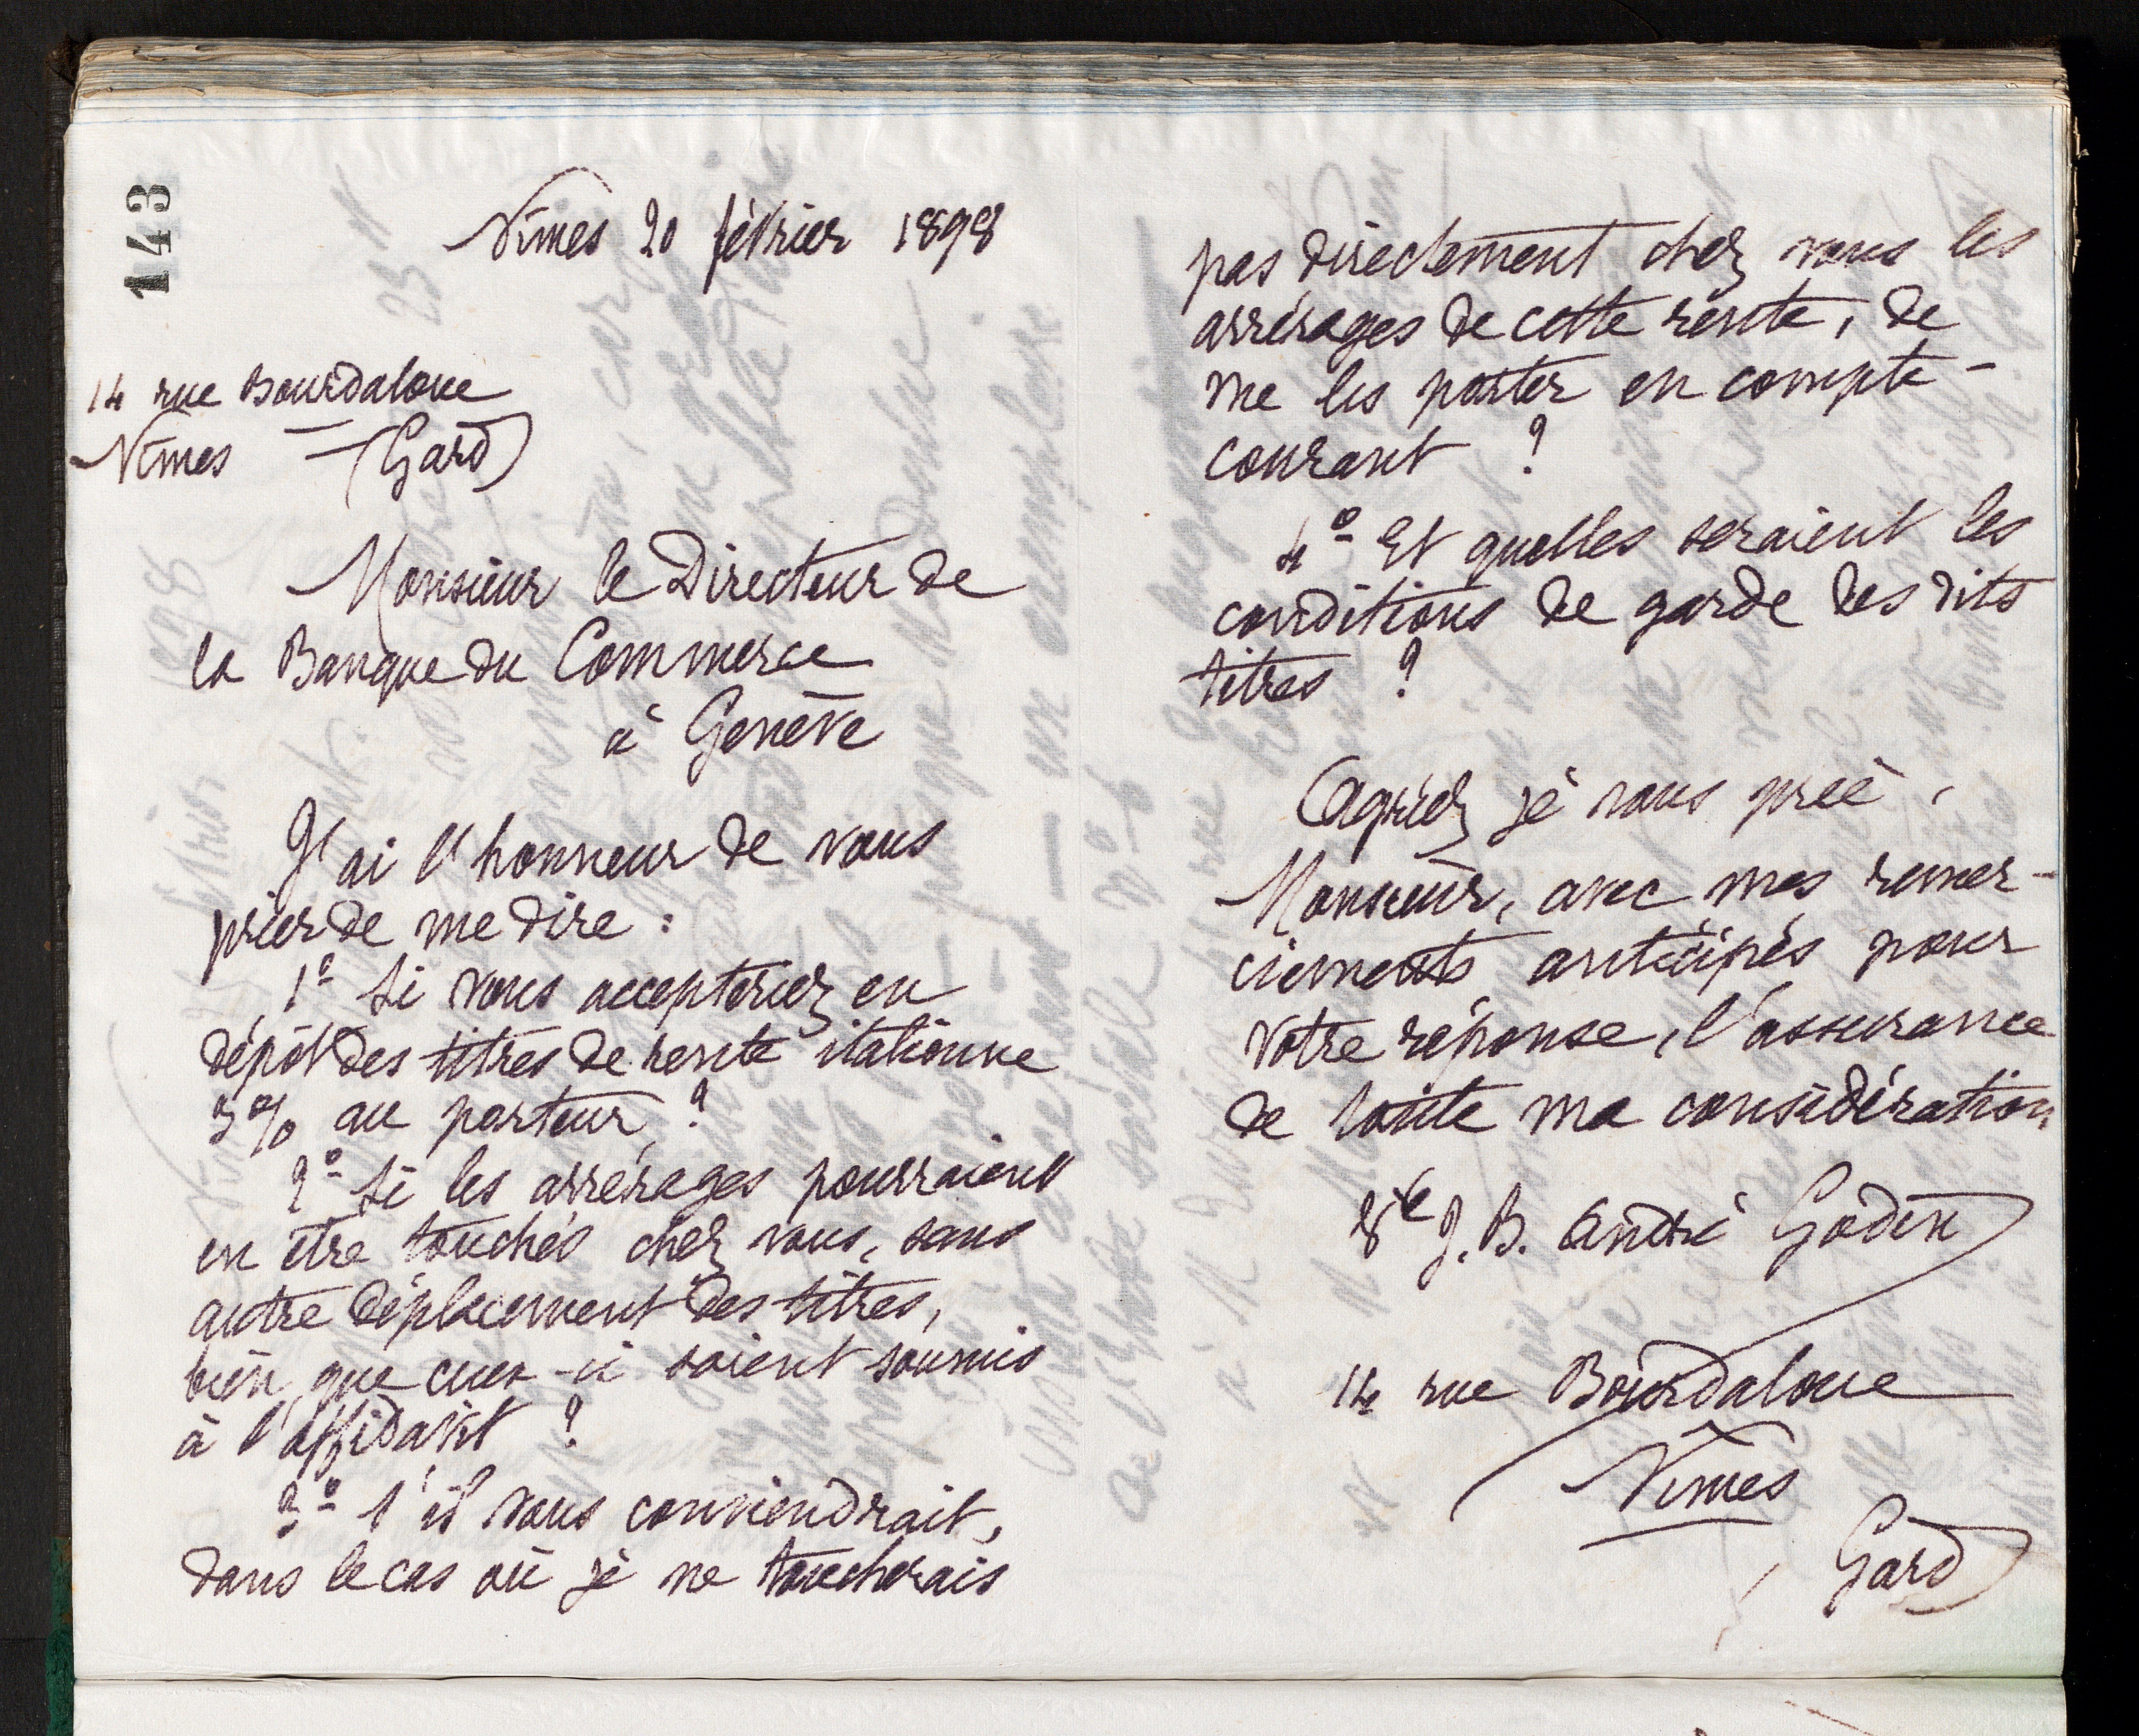 143
Nîmes 20 février 1898
14 rue Bourdaloue
Nîmes — (Gard)
Monsieur le Directeur de
la Banque du Commerce
à Genève
J'ai l'honneur de vous
prier de me dire :
1° Si vous accepteriez en
dépôt des titres de rente italienne
5% au porteur ?
2° Si les arrérages pourraient
en être touchés chez vous, sans
autre déplacement des titres,
bien que ceux-ci soient soumis
à l'affidavit ?
3° S'il vous conviendrait,
dans le cas où je ne toucherais
pas directement chez vous les
arrérages de cette rente, de
me les porter en compte-
courant ?
4° Et quelles seraient les
conditions de garde des dits
titres ?
Agréez je vous prie,
Monsieur, avec mes remer-
ciements anticipés pour
votre réponse, l'assurance
de toute ma considération.
Vve J. B. André Godin
14 rue Bourdaloue
Nîmes
Gard